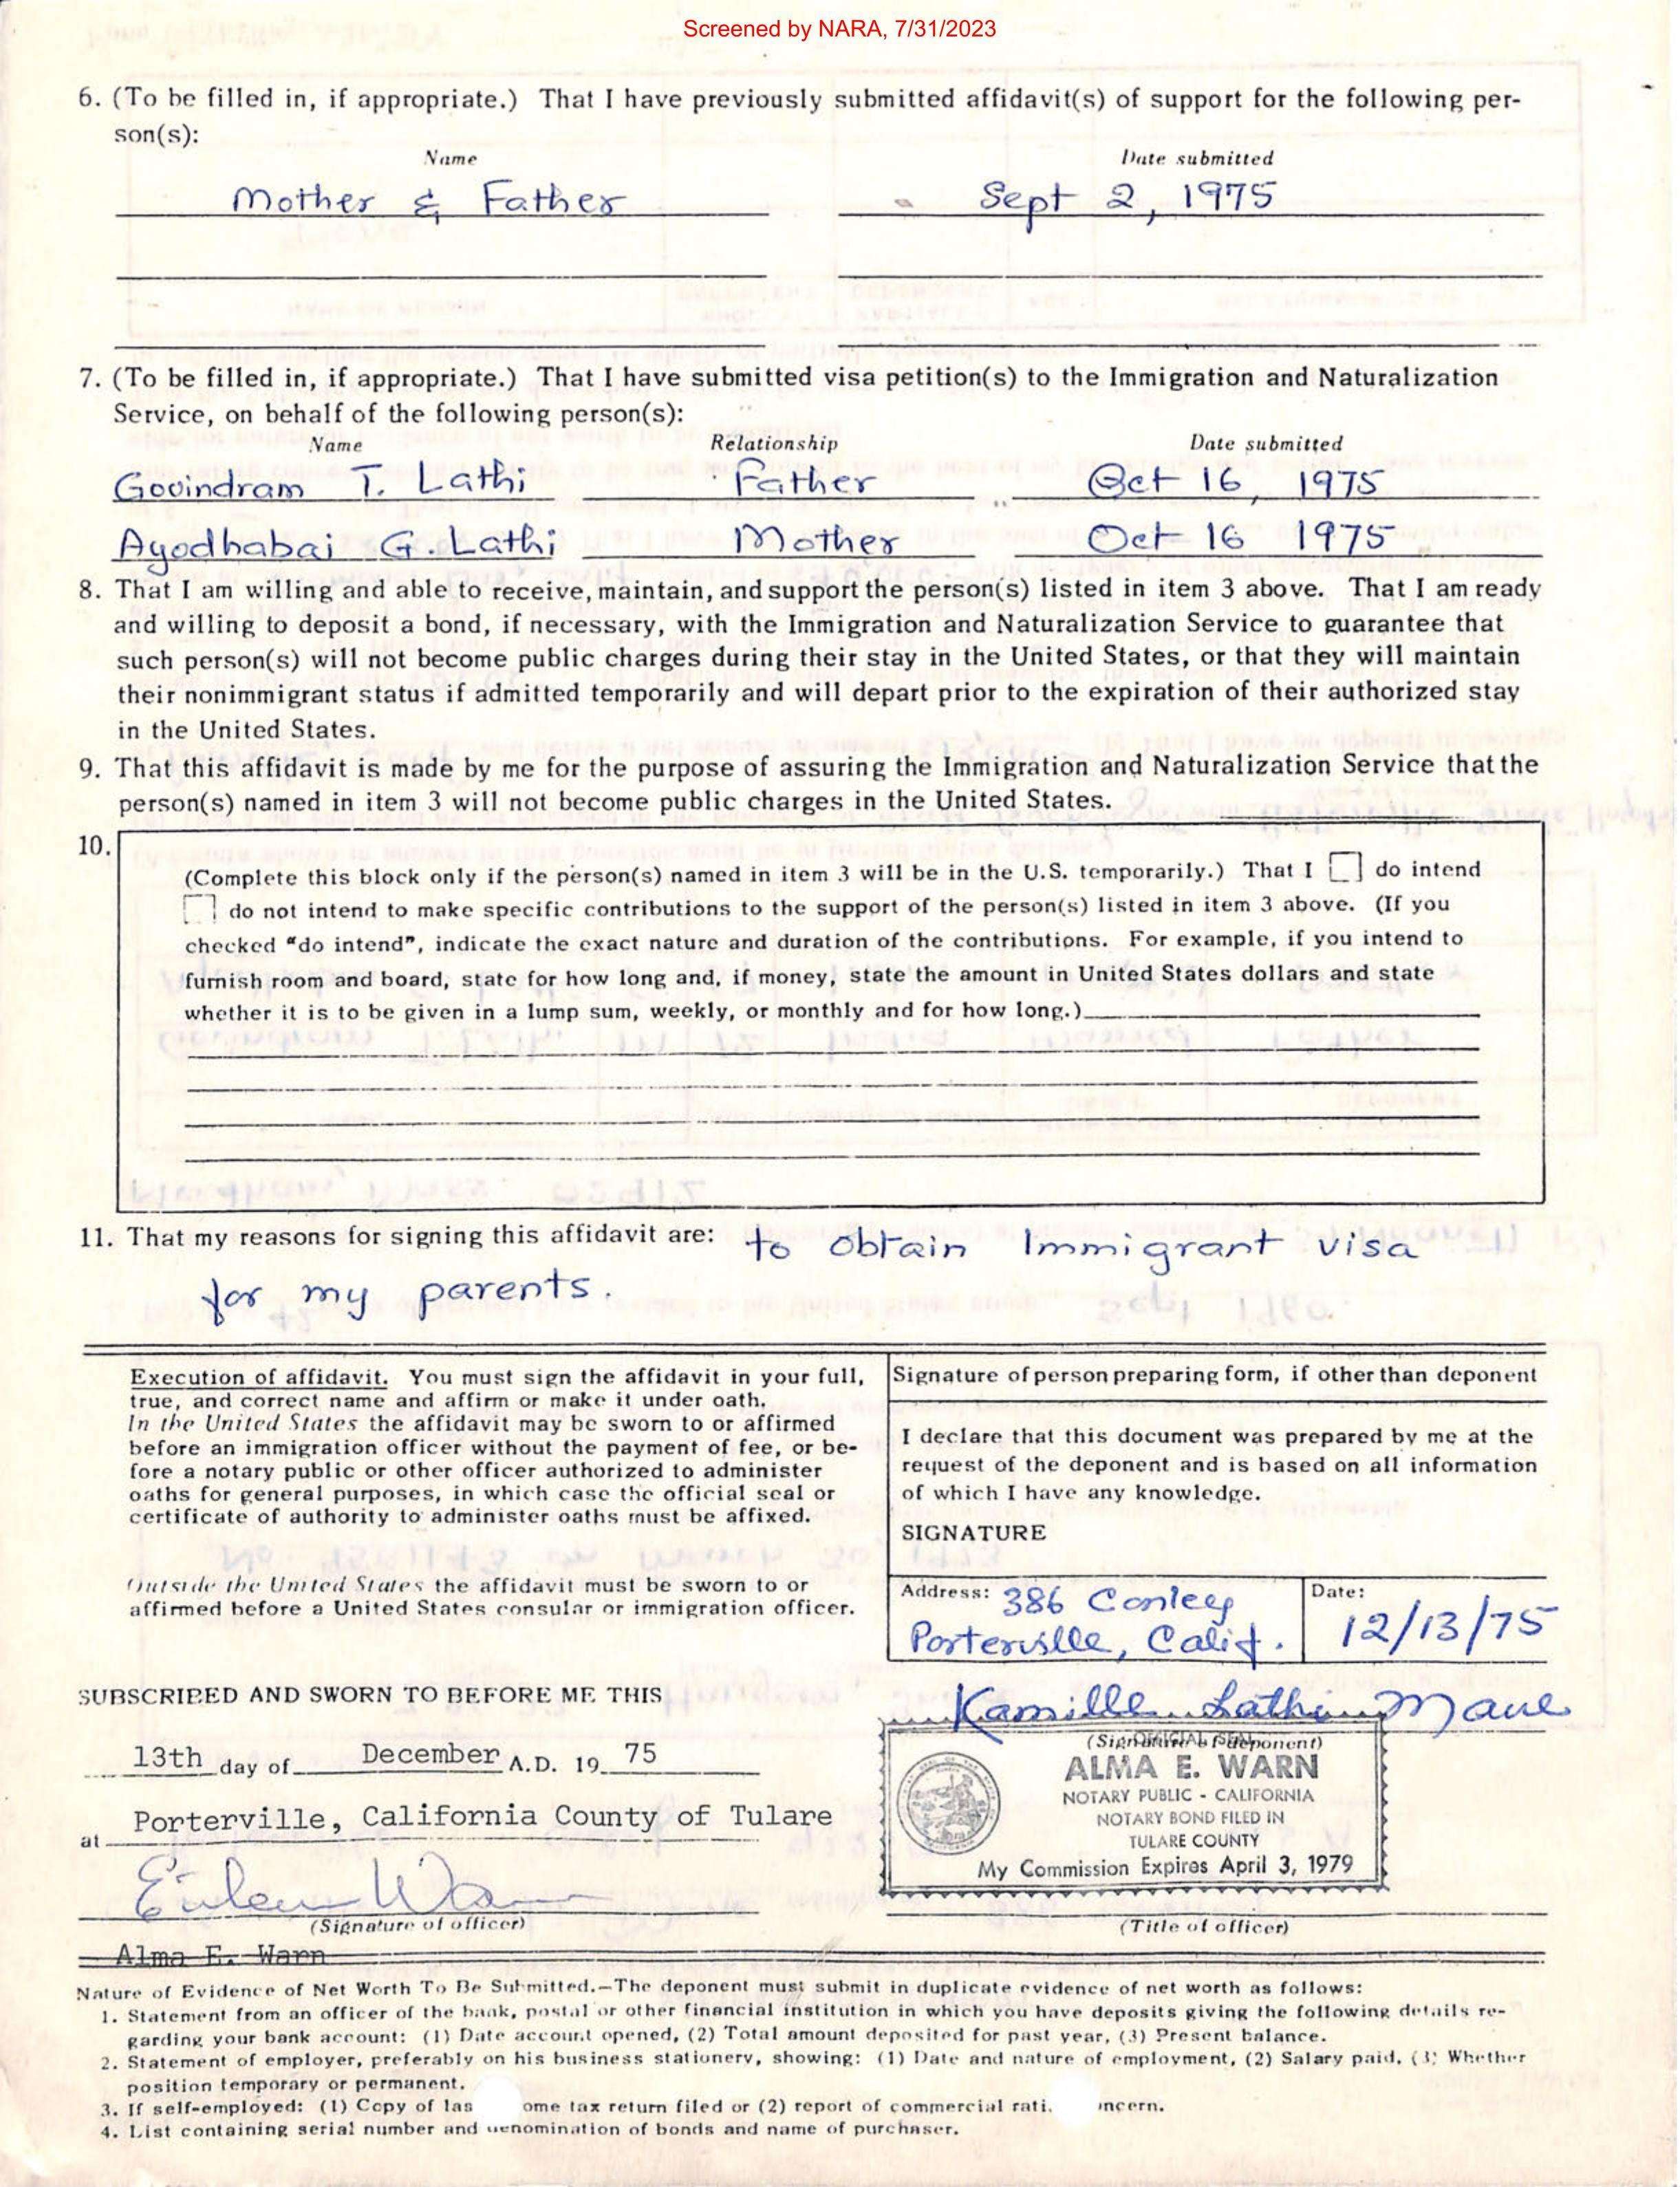 Screened by NARA, 7/31/2023
6. (To be filled in, if appropriate.) That I have previously submitted affidavit(s) of support for the following per-
son(s):
Name Date submitted
Mother & Father Sept 2, 1975
7. (To be filled in, if appropriate.) That I have submitted visa petition(s) to the Immigration and Naturalization
Service, on behalf of the following person(s):
Name Relationship Date submitted
Govindram T. Lathi Father Oct 16, 1975
Ayodhabai G. Lathi Mother Oct 16 1975
8. That I am willing and able to receive, maintain, and support the person(s) listed in item 3 above. That I am ready
and willing to deposit a bond, if necessary, with the Immigration and Naturalization Service to guarantee that
such person(s) will not become public charges during their stay in the United States, or that they will maintain
their nonimmigrant status if admitted temporarily and will depart prior to the expiration of their authorized stay
in the United States.
9. That this affidavit is made by me for the purpose of assuring the Immigration and Naturalization Service that the
person(s) named in item 3 will not become public charges in the United States.
10.
(Complete this block only if the person(s) named in item 3 will be in the U.S. temporarily.) That I do intend
do not intend to make specific contributions to the support of the person(s) listed in item 3 above. (If you
checked "do intend", indicate the exact nature and duration of the contributions. For example, if you intend to
furnish room and board, state for how long and, if money, state the amount in United States dollars and state
whether it is to be given in a lump sum, weekly, or monthly and for how long.)
11. That my reasons for signing this affidavit are: to obtain Immigrant visa
for my parents.
Execution of affidavit. You must sign the affidavit in your full,
true, and correct name and affirm or make it under oath.
In the United States the affidavit may be sworn to or affirmed
before an immigration officer without the payment of fee, or be-
fore a notary public or other officer authorized to administer
oaths for general purposes, in which case the official seal or
certificate of authority to administer oaths must be affixed.
Outside the United States the affidavit must be sworn to or
affirmed before a United States consular or immigration officer.
Signature of person preparing form, if other than deponent
I declare that this document was prepared by me at the
request of the deponent and is based on all information
of which I have any knowledge.
SIGNATURE
Address: 386 Conley
Porterville, Calif.
Date:
12/13/75
SUBSCRIBED AND SWORN TO BEFORE ME THIS
Kamille Lathi Mane
(Signature of deponent)
13th day of December A.D. 19 75
at Porterville, California County of Tulare
OFFICIAL SEAL
ALMA E. WARN
NOTARY PUBLIC - CALIFORNIA
NOTARY BOND FILED IN
TULARE COUNTY
My Commission Expires April 3, 1979
(Signature of officer) (Title of officer)
Alma E. Warn
Nature of Evidence of Net Worth To Be Submitted.—The deponent must submit in duplicate evidence of net worth as follows:
1. Statement from an officer of the bank, postal or other financial institution in which you have deposits giving the following details re-
garding your bank account: (1) Date account opened, (2) Total amount deposited for past year, (3) Present balance.
2. Statement of employer, preferably on his business stationery, showing: (1) Date and nature of employment, (2) Salary paid, (3) Whether
position temporary or permanent.
3. If self-employed: (1) Copy of las ome tax return filed or (2) report of commercial rati. ncern.
4. List containing serial number and denomination of bonds and name of purchaser.